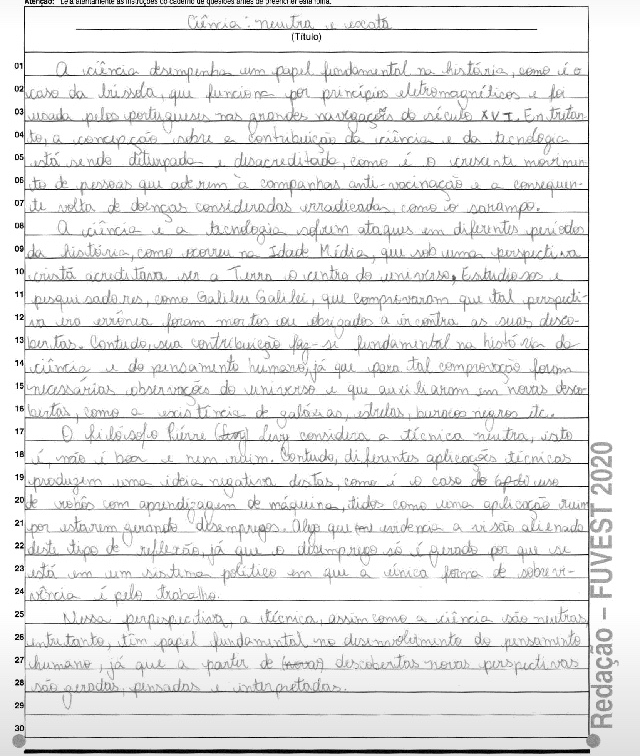 Atenção: Leia atentamente as instruções do caderno de questões antes de preencher esta folha.
Ciência: neutra e exata
(Título)
01 A ciência desempenha um papel fundamental na história, como é o
02 caso da bússola, que funciona por princípios eletromagnéticos e foi
03 usada pelos portugueses nas grandes navegações do século XVI. Entretan-
04 to, a concepção sobre a contribuição da ciência e da tecnologia
05 está sendo diturpada e desacreditada, como é o crescente movimen-
06 to de pessoas que aderem à campanhas anti-vacinação e a consequen-
07 te volta de doenças consideradas erradicadas, como o sarampo.
08 A ciência e a tecnologia sofrem ataques em diferentes períodos
09 da história, como ocorreu na Idade Média, que sob uma perspectiva
10 cristã acreditava ser a Terra o centro do universo. Estudiosos e
11 pesquisadores, como Galileu Galilei, que comprovaram que tal perspecti-
12 va era errônea foram mortos ou obrigados a ir contra as suas desco-
13 bertas. Contudo, sua contribuição faz-se fundamental na história da
14 ciência e do pensamento humano, já que para tal comprovação foram
15 necessárias observações do universo e que auxiliaram em novas desco-
16 bertas, como a existência de galáxias, estrelas, buracos negros etc.
17 O filósofo Piérre Levy considera a técnica neutra, isto
18 é, não é boa e nem ruim. Contudo, diferentes aplicações técnicas
19 produzem uma ideia negativa destas, como é o caso do uso
20 de robôs com aprendizagem de máquina, tidos como uma aplicação ruim
21 por estarem gerando desempregos. Algo que evidencia a visão alienada
22 deste tipo de reflexão, já que o desemprego só é gerado por que se
23 está em um sistema político em que a única forma de sobrevi-
24 vência é pelo trabalho.
25 Nessa perpespectiva, a técnica, assim como a ciência são neutras,
26 entrutanto, têm papel fundamental no desenvolvimento do pensamento
27 humano, já que a partir de descobertas novas perspectivas
28 são geradas, pensadas e interpretadas.
29
30
Redação – FUVEST 2020